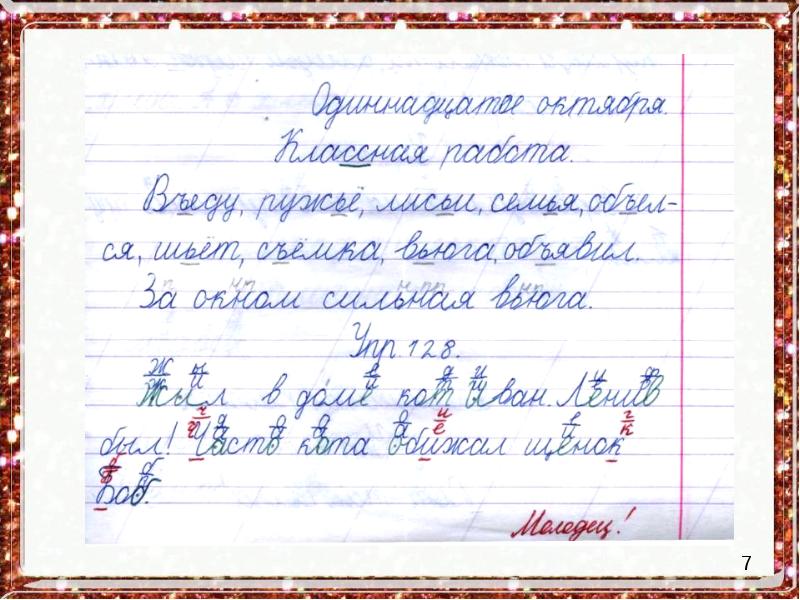 Одиннадцатое октября.
Классная работа.
Въеду, ружьё, лисьи, семья, объел-
ся, шьёт, съёмка, вьюга, объявил.
За окном сильная вьюга.
Упр. 128.
Жил в доме кот Иван. Ленив
был! Часто кота обижал щенок
Боб.
Молодец!
7